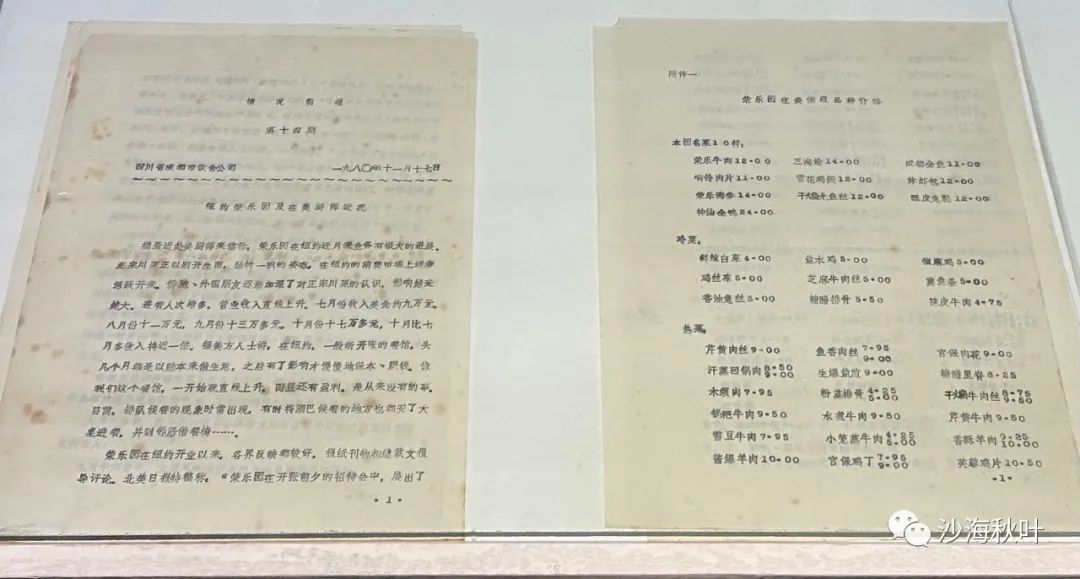 情况简报
第十四期
四川省成都市饮食公司 一九八〇年十一月十七日
纽约荣乐园及在美厨师近况
据最近赴美厨师来信称，荣乐园在纽约近月来业务有很大的进展。
正宗川菜正以别开生面，独树一帜的姿态，在纽约的消费市场上逐步
活跃开来。侨胞、外国朋友逐渐加深了对正宗川菜的认识，影响越来
越大。进餐人次增多，营业收入直线上升。七月份收入美金约九万元，
八月份十一万元，九月份十三万多元，十月份十七万多元，十月比七
月多收入将近一倍。据美方人士讲，在纽约，一般新开张的餐馆，头
几个月总是以贴本来做生意，之后有了影响才慢慢地保本、赚钱。像
我们这个餐馆，一开始就直线上升，而且还有盈利，是从来没有的事。
目前，排队候餐的现象时常出现，有时将酒巴候餐的地方也都安了大
桌进餐，并到邻居借餐椅……。
荣乐园在纽约开业以来，各界反映都较好，报纸刊物相继载文报
导评论。北美日报特稿称：“荣乐园在开张前夕的招待会中，展出了
·1·
附件一
荣乐园在美供应品种价格
本园名菜10样：
荣乐牛肉12·00 三淘烩14·00 全鱼11·00
响铃肉片11·00 雪花鸡闹12·00 炸虾包12·00
荣乐海参14·00 干烧鱼丝12·00 陈皮兔糕12·00
钟仙全鸭24·00
冷菜：
鲜辣白菜4·00 盐水鸡5·00 椒麻鸡5·00
鸡丝冻5·00 芝麻牛肉丝5·00 熏鱼条5·00
香油兔丝5·00 糖醋排骨5·50 陈皮牛肉4·75
热菜：
芹黄肉丝9·00 鱼香肉丝7·95 9·00 宫保肉花9·00
汗蒸回锅肉8·50 9·00 生爆盐煎9·00 糖醋里脊8·25
木须肉7·95 粉蒸排骨4·25 5·00 干煸牛肉丝8·75 9·50
锅粑牛肉9·50 水煮牛肉9·50 芹黄牛肉9·50
雪豆牛肉7·95 小笼蒸牛肉4·25 5·00 香酥羊肉9·25 10·00
酱爆羊肉10·00 宫保鸡丁7·95 9·00 芙蓉鸡片10·50
·1·
沙海秋叶